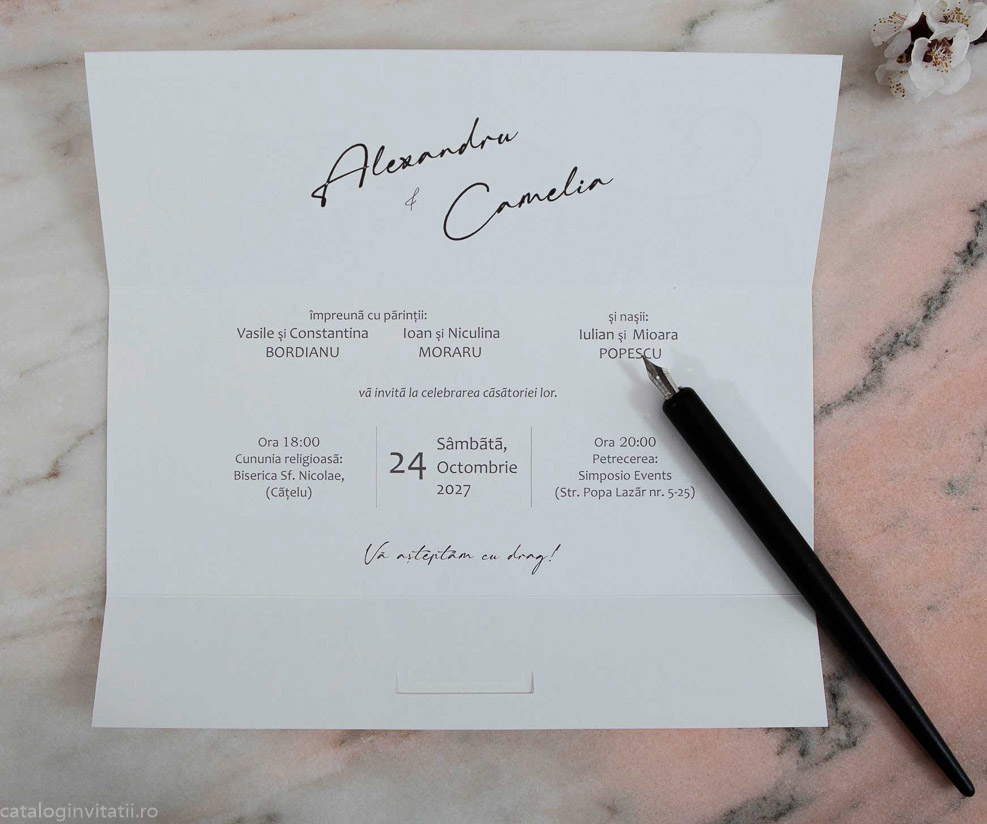 Alexandru
&
Camelia
împreunã cu pãrinții:
Vasile și Constantina
BORDIANU
Ioan și Niculina
MORARU
și nașii:
Iulian și Mioara
POPESCU
vã invitã la celebrarea cãsãtoriei lor.
Ora 18:00
Cununia religioasã:
Biserica Sf. Nicolae,
(Cãțelu)
24
Sâmbãtã,
Octombrie
2027
Ora 20:00
Petrecerea:
Simposio Events
(Str. Popa Lazãr nr. 5-25)
Vã aștêptãm cu drag!
cataloginvitatii.ro